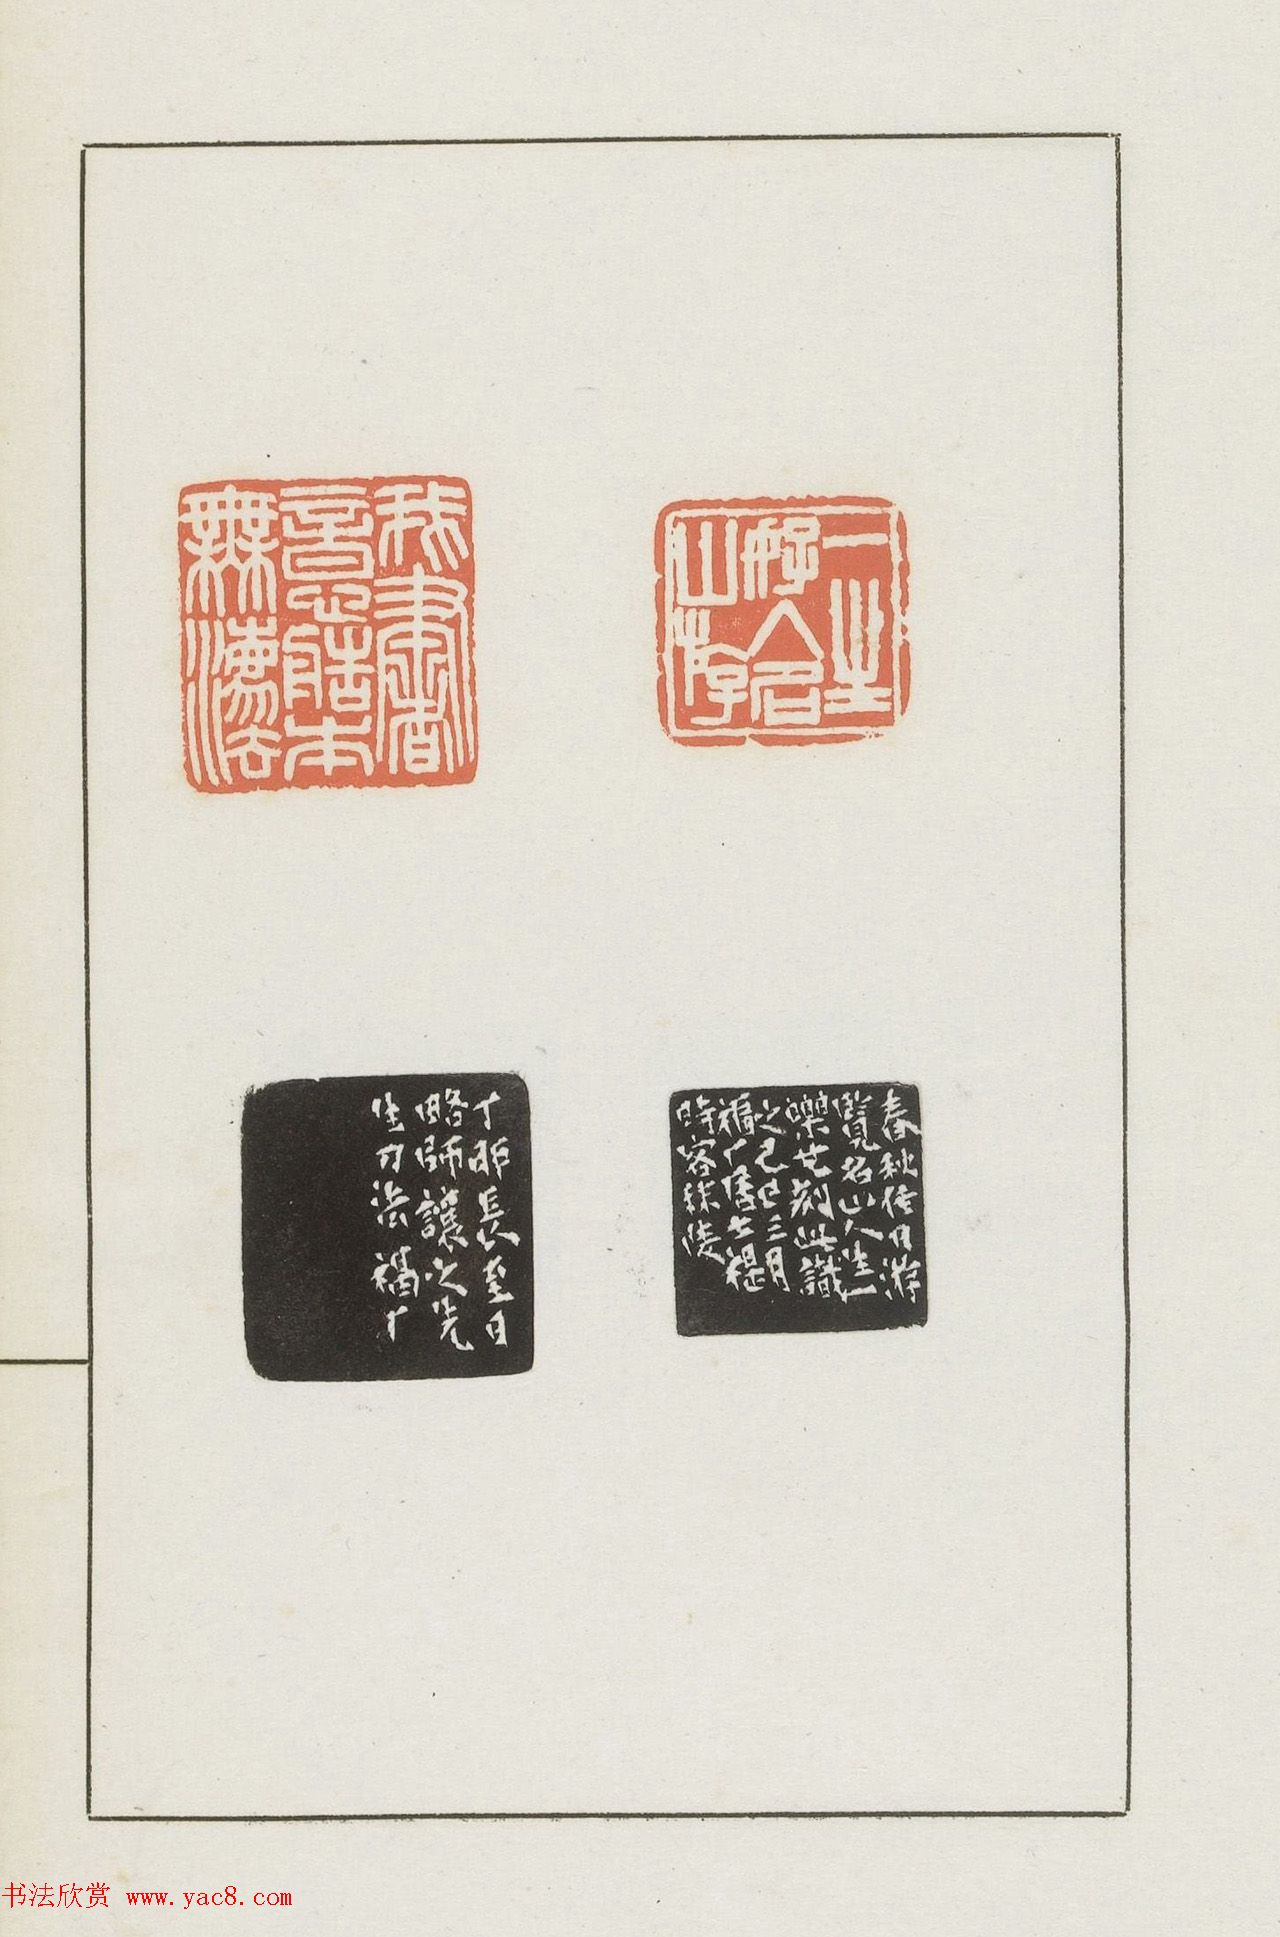 一生
好入名
山游
我書
意造本
無灋
春秋佳日游
覽名山人生一
樂也刻此識
之己巳三月
福厂居士禔
時客秣陵
丁卯長至日
略師讓之先
生刀法福厂
书法欣赏 www.yac8.com